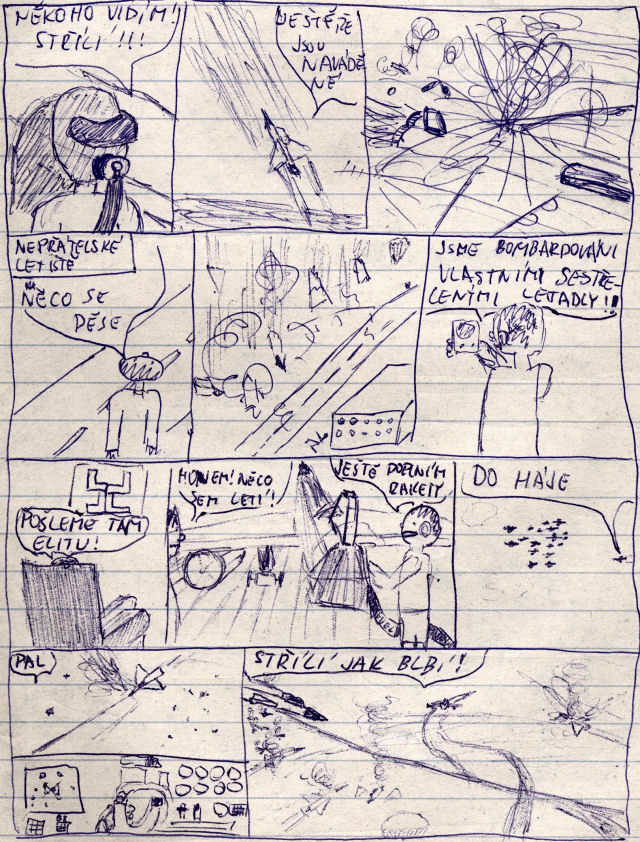 NĚKOHO VIDÍM!
STŘÍLÍ!!!
JEŠTĚŽE
JSOU
NAVÁDĚ
NÉ
NEPŘÁTELSKÉ
LETIŠTĚ
NĚCO SE
DĚSE
JSME BOMBARDOVÁNI
VLASTNÍMI SESTŘE-
LENÝMI LETADLY!!
POŠLEME TAM
ELITU!
HONEM! NĚCO
SEM LETÍ!
JEŠTĚ DOPLNÍM
RAKETY
DO HÁJE
PAL
STŘÍLÍ JAK BLBÍ!